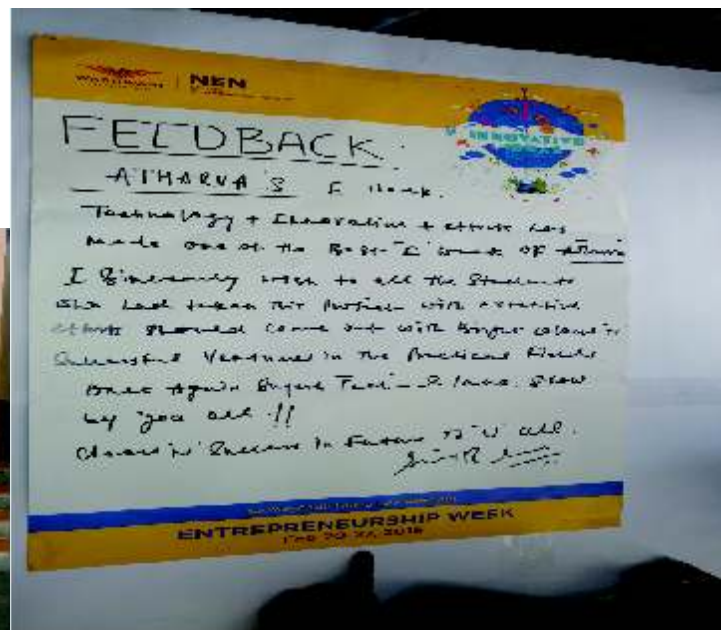 WADHWANI NEN
INNOVATIVE
FEEDBACK
ATHARVA'S E Week.
Technology + Innovation + efforts has
made one of the Best "E" week of Atharva
I Sincerely wish to all the Students
who had taken this with extensive
efforts should come out with Bright colours in
Successful Ventures in the Practical Fields
Once Again Show
by you all !!
Success in Future to 'U' all.
ENTREPRENEURSHIP WEEK